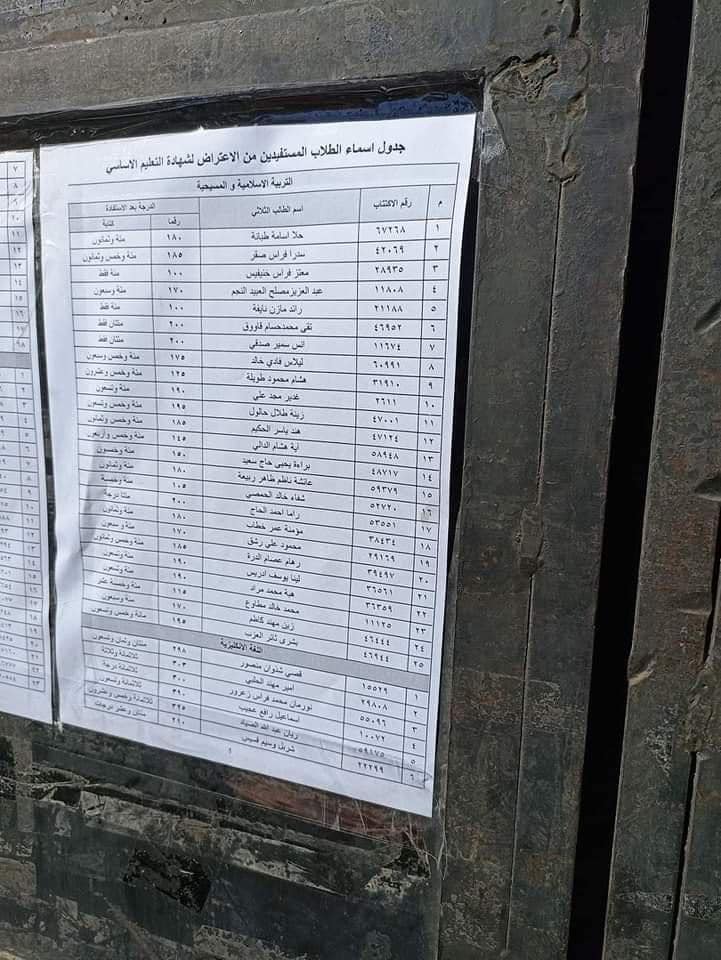 جدول اسماء الطلاب المستفيدين من الاعتراض لشهادة التعليم الاساسي
التربية الاسلامية و المسيحية
م رقم الاكتتاب اسم الطالب الثلاثي الدرجة بعد الاستفادة
رقما كتابة
١ ٦٧٢٦٨ حلا اسامة طبانة ١٨٠ مئة وثمانون
٢ ٤٢٠٦٩ سدرا فراس صقر ١٨٥ مئة وخمس وثمانون
٣ ٢٨٩٣٥ معتز فراس خنيفيس ١٠٠ مئة فقط
٤ ١١٨٠٨ عبد العزيزمصلح العبيد النجم ١٧٠ مئة وسبعون
٥ ٢١١٨٨ رائد مازن نايفة ١٠٠ مئة فقط
٦ ٤٦٩٥٢ تقى محمدحسام قاووق ٢٠٠ مئتان فقط
٧ ١١٦٧٤ انس سمير صدقي ٢٠٠ مئتان فقط
٨ ٦٠٩٩١ ليلاس فادي خالد ١٧٥ مئة وخمس وسبعون
٩ ٣١٩١٠ هشام محمود طويلة ١٢٥ مئة وخمس وعشرون
١٠ ٢٦١١ غدير مجد علي ١٩٠ مئة وتسعون
١١ ٤٧٠٠١ زينة طلال حالول ١٩٥ مئة وخمس وتسعون
١٢ ٤٧١٢٤ هند ياسر الحكيم ١٨٥ مئة وخمس وثمانون
١٣ ٥٨٩٤٨ آية هشام الدالي ١٤٥ مئة وخمس وأربعون
١٤ ٤٨٧١٧ براءة يحيى حاج سعيد ١٥٠ مئة وخمسون
١٥ ٥٩٣٧٩ عائشة ناظم طاهر ربيعة ١٨٠ مئة وثمانون
١٦ ٥٢٧٢٠ شفاء خالد الحمصي ١٠٥ مئة وخمسة
١٧ ٥٣٥٥١ راما احمد الحاج ٢٠٠ مئتا درجة
١٨ ٣٨٤٣٤ مؤمنة عمر خطاب ١٨٠ مئة وثمانون
١٩ ٢٩١٦٩ محمود علي رشق ١٧٠ مئة وسبعون
٢٠ ٣٩٤٩٧ رهام عصام الدرة ١٨٥ مئة وخمس وثمانون
٢١ ٣٦٥٦١ لينا يوسف ادريس ١٩٠ مئة وتسعون
٢٢ ٣٦٣٥٩ هبة محمد مراد ١٩٠ مئة وتسعون
٢٣ ١١١٢٥ محمد خالد مطاوع ١١٥ مئة وخمسة عشر
٢٤ ٤٦٤٤٤ زين مهند كاظم ١٧٠ مئة وسبعون
٢٥ ٤٦٩٤٤ بشرى ثائر العزب ١٩٥ مائة وخمس وتسعون
اللغة الانكليزية
١ ١٥٥٢٩ قصي شذوان منصور ٢٩٨ مئتان وثمان وتسعون
٢ ٢٩٨٠٨ امير مهند الحلبي ٣٠٣ ثلاثمائة وثلاثة
٣ ٥٥٠٩٦ نورمان محمد فراس زعرور ٣٠٠ ثلاثمائة درجة
٤ ١٠٠٧٢ اسماعيل رافع عجيب ٣٩٠ ثلاثمائة وتسعون
٥ ٥٩١٧٥ ريان عبد الله الصياد ٣٢٥ ثلاثمائة وخمس وعشرون
٦ ٢٢٢٩٩ شربل وسيم قسيس ٢١٠ مئتان وعشر درجات